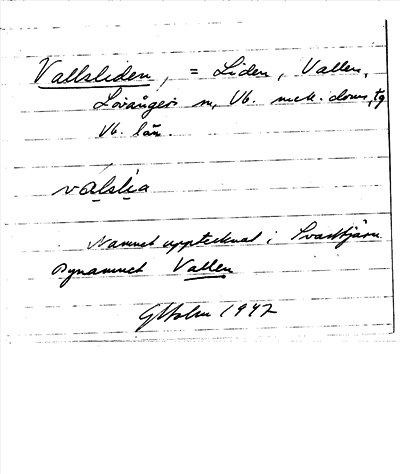 Vallsliden, = Liden, Vallen,
Lövångers sn, Vb. mell. doms. tg
Vb. län.
valslia
Namnet upptecknat i Svarttjärn
Bynamnet Vallen
G Holm 1947